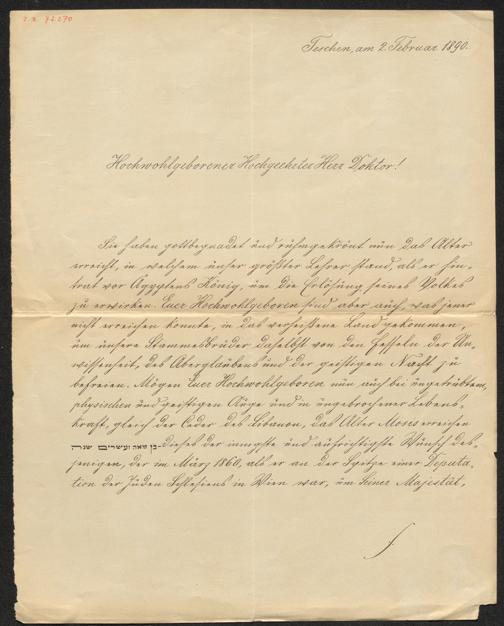 Teschen, am 2. Februar 1890.
Hochwohlgeborener Hochgeehrter Herr Doktor!
Sie haben gottbegnadet und ruhmgekrönt nun das Alter
erreicht, in welchem unser größter Lehrer stand, als er hin-
trat vor Egyptens König, um die Erlösung seines Volkes
zu erwirken. Euer Hochwohlgeboren sind aber auch, was jener
nicht erreichen konnte, in das verheißene Land gekommen,
um unsere Stammesbrüder daselbst von den Fesseln der Un-
wissenheit, des Aberglaubens und der geistigen Nacht zu
befreien. Mögen Euer Hochwohlgeboren nun auch bei ungetrübtem,
physischen und geistigen Auge und in ungebrochener Lebens-
kraft, gleich der Ceder des Libanon, das Alter Moses erreichen
בן מאה ועשרים שנה – dieses der innigste und aufrichtigste Wunsch des-
jenigen, der im März 1860, als er an der Spitze einer Deputa-
tion der Juden Schlesiens in Wien war, um Seiner Majestät,